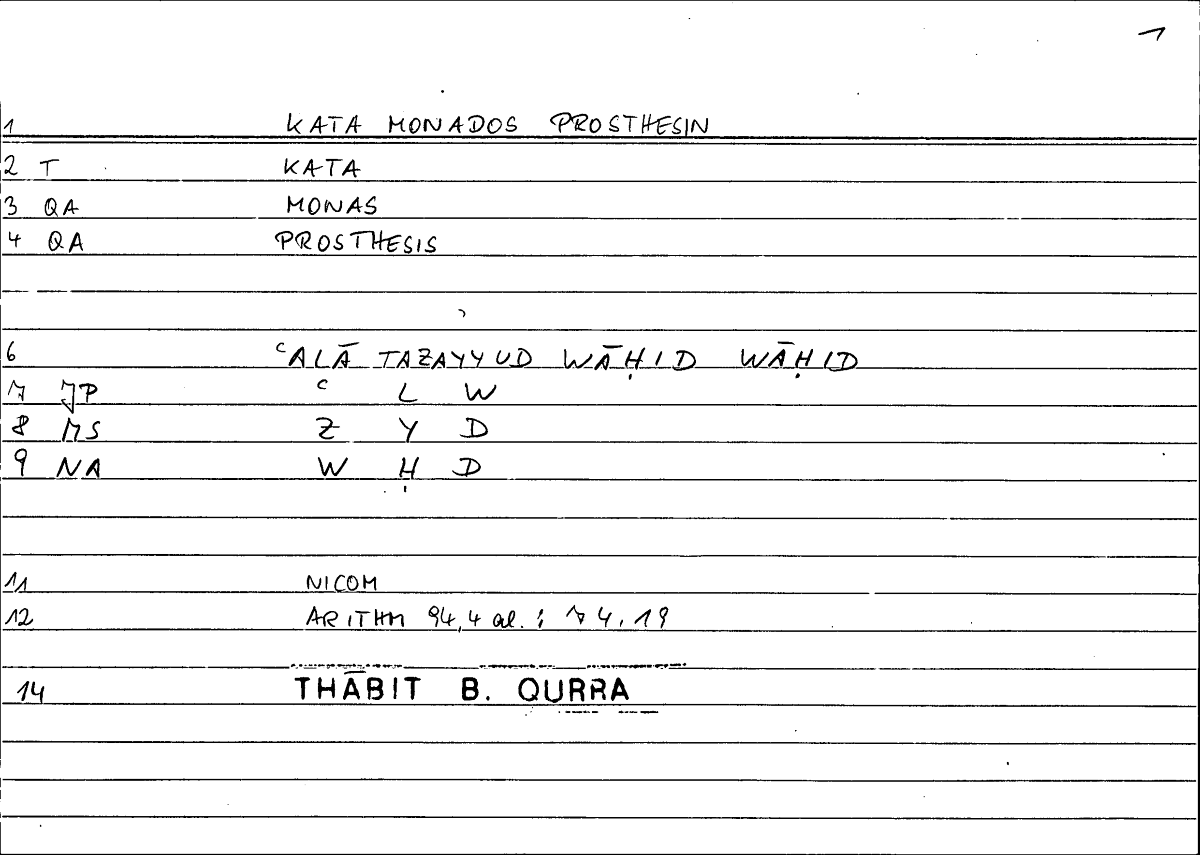 1
1 KATA MONADOS PROSTHESIN
2 T KATA
3 QA MONAS
4 QA PROSTHESIS
6 ʿALĀ TAZAYYUD WĀḤID WĀḤID
7 JP ʿ L W
8 MS Z Y D
9 NA W Ḥ D
11 NICOM
12 ARITHM 94,4 al. ; 74,19
14 THĀBIT B. QURRA